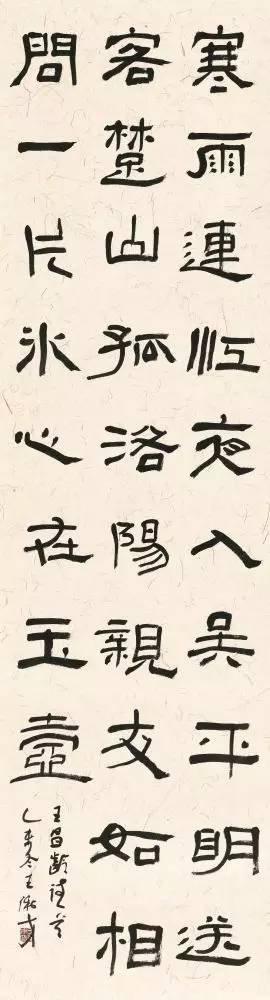 寒雨連江夜入吳平明送
客楚山孤洛陽親友如相
問一片冰心在玉壺
王昌齡詩
乙未冬王